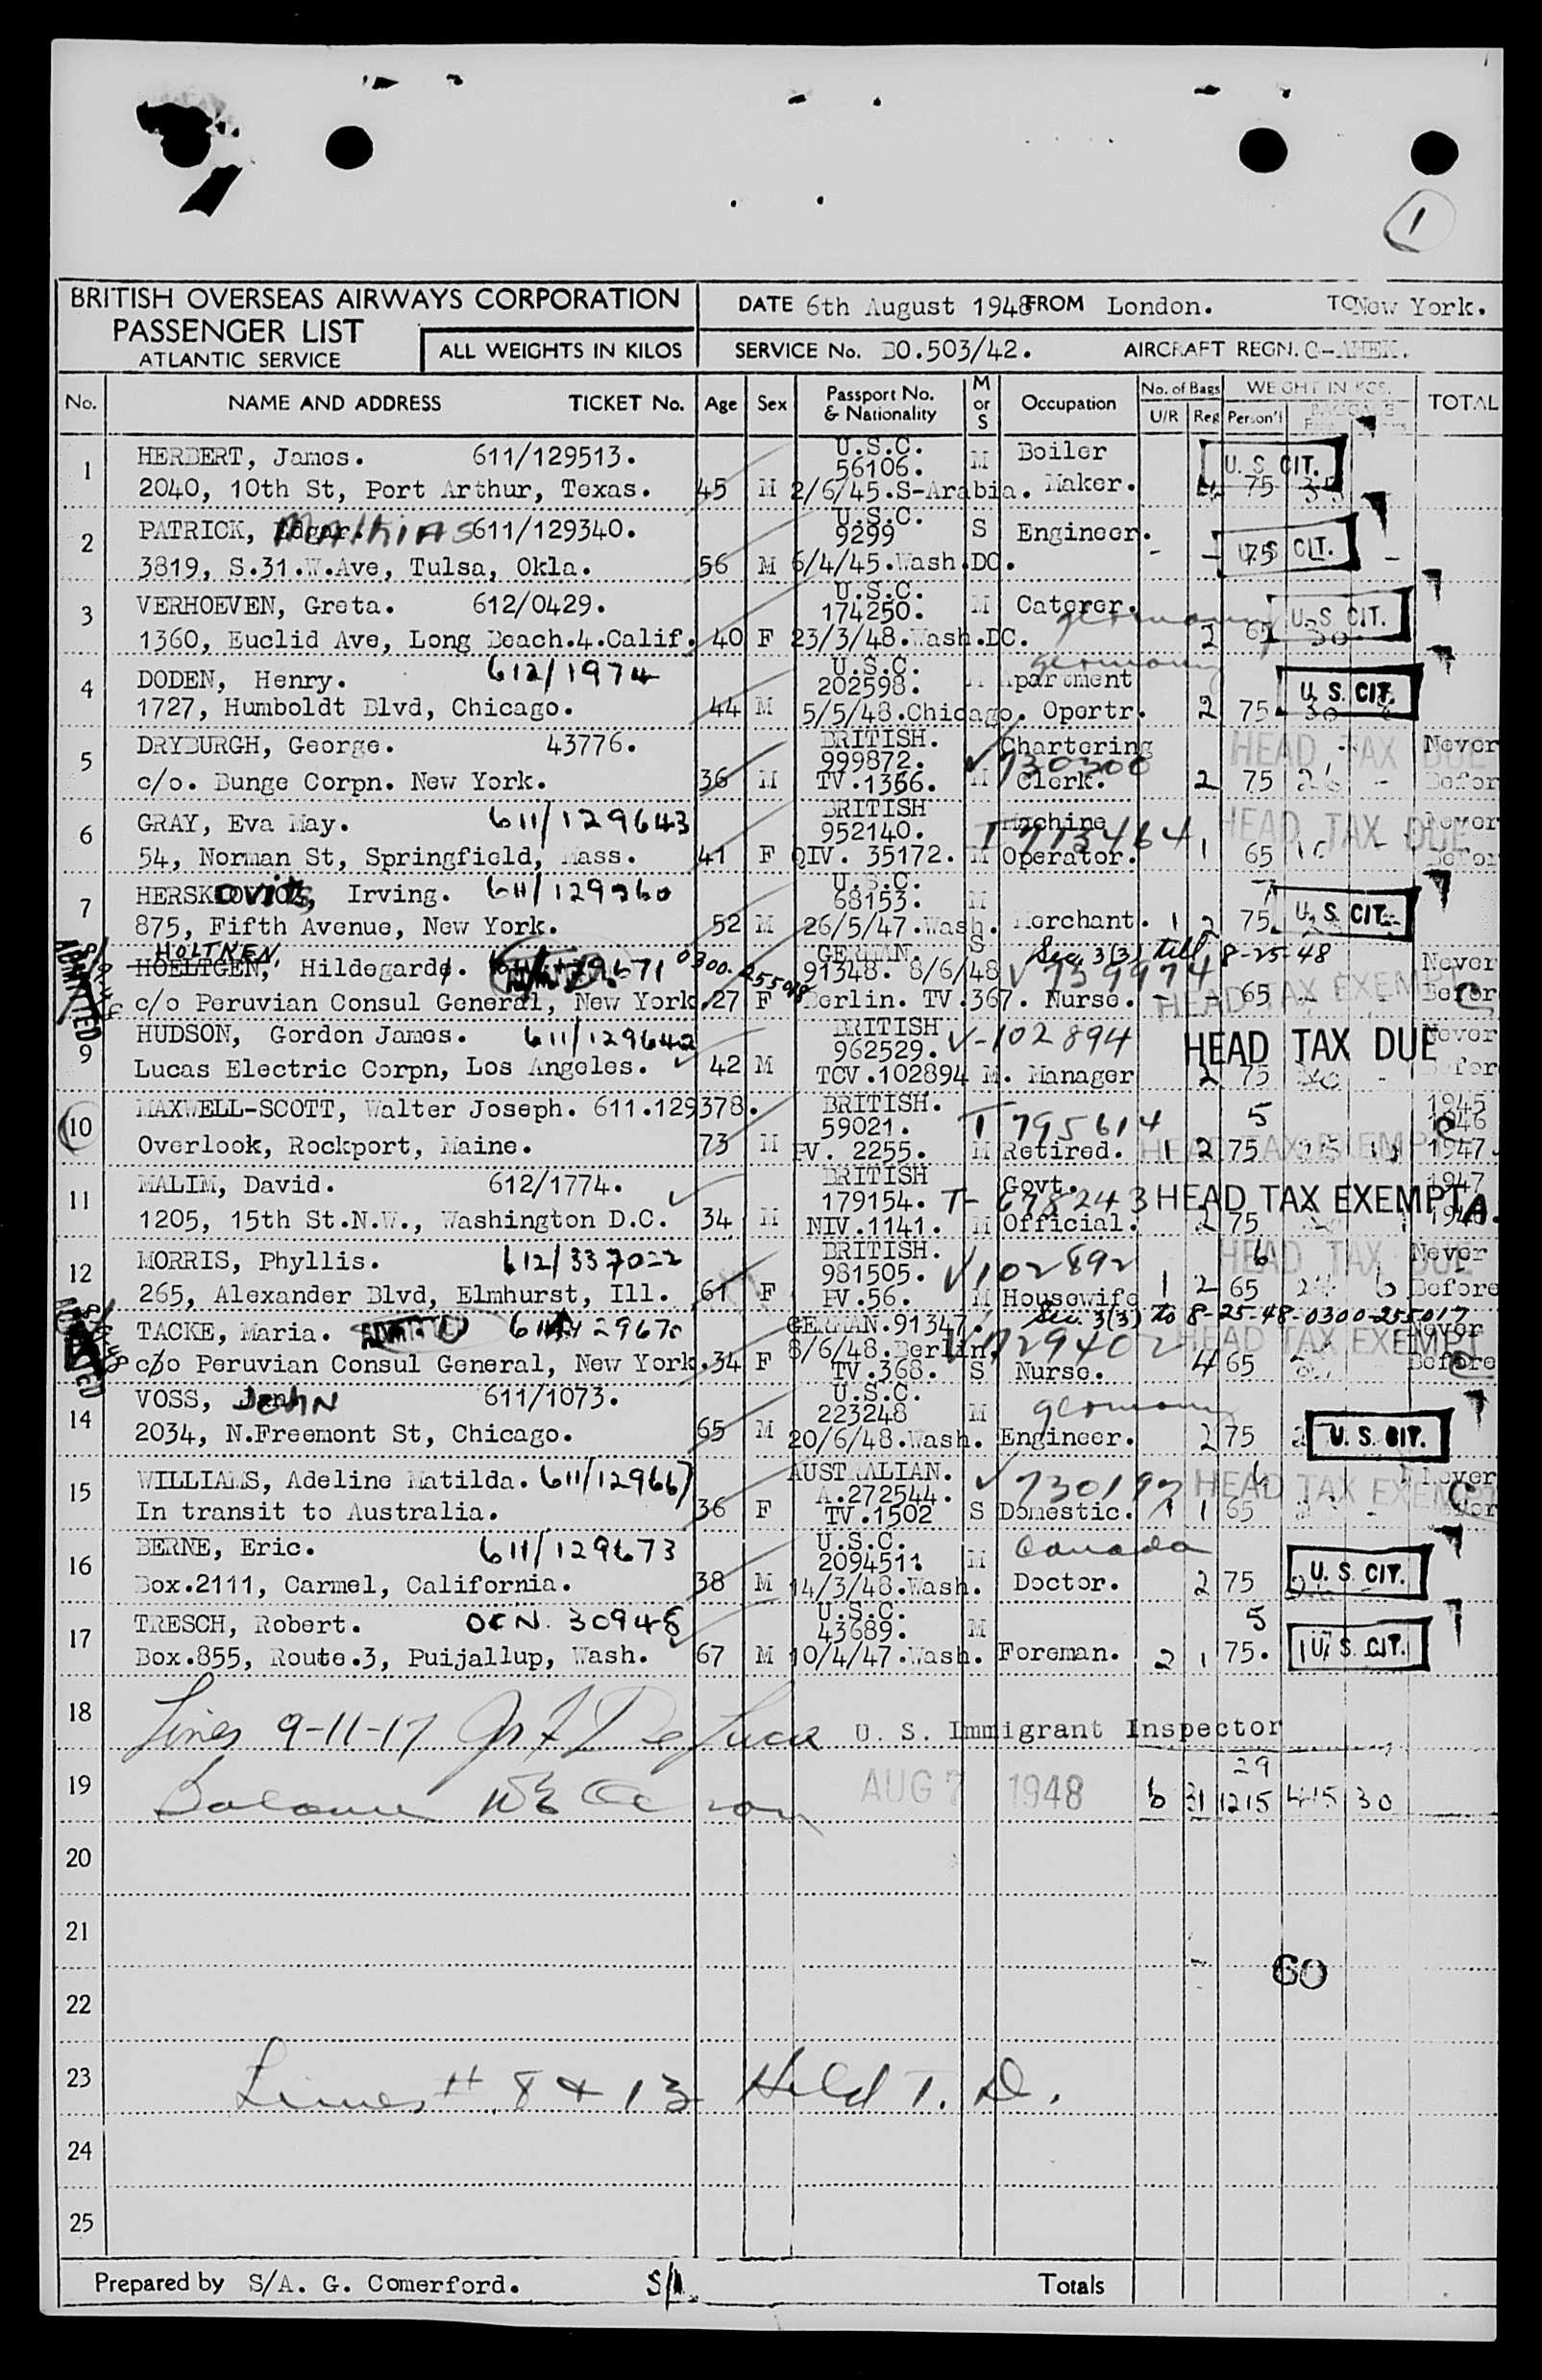 1
BRITISH OVERSEAS AIRWAYS CORPORATION
PASSENGER LIST
ATLANTIC SERVICE
ALL WEIGHTS IN KILOS
DATE 6th August 1948 FROM London. TO New York.
SERVICE No. BO.503/42. AIRCRAFT REGN. G-AHEK.
No. NAME AND ADDRESS TICKET No. Age Sex Passport No. & Nationality M or S Occupation No. of Bags U/R Reg WEIGHT IN KGS. Person'l TOTAL
1 HERBERT, James. 611/129513. U.S.C. 56106. M Boiler U. S. CIT.
2040, 10th St, Port Arthur, Texas. 45 M 2/6/45.S-Arabia. Maker. 4 75 35
2 PATRICK, Mathias 611/129340. U.S.C. 9299 S Engineer. U S CIT.
3819, S.31.W.Ave, Tulsa, Okla. 56 M 6/4/45.Wash.DC. - - 75 -
3 VERHOEVEN, Greta. 612/0429. U.S.C. 174250. M Caterer. germany U.S CIT.
1360, Euclid Ave, Long Beach.4.Calif. 40 F 23/3/48.Wash.DC. 2 65 30
4 DODEN, Henry. 612/1974 U.S.C. 202598. germany Apartment U. S. CIT.
1727, Humboldt Blvd, Chicago. 44 M 5/5/48.Chicago. Opertr. 2 75 30
5 DRYBURGH, George. 43776. BRITISH. 999872. Chartering V730300 HEAD TAX DUE Never
c/o. Bunge Corpn. New York. 36 M TV.1366. M Clerk. 2 75 26 - Before
6 GRAY, Eva May. 611/129643 BRITISH 952140. Machine T 773464 HEAD TAX DUE Never
54, Norman St, Springfield, Mass. 41 F QIV. 35172. M Operator. 1 65 Before
7 HERSKOVITS, Irving. 611/129360 U.S.C. 68153. M 7 U. S. CIT.
875, Fifth Avenue, New York. 52 M 26/5/47.Wash. Merchant. 1 2 75
HOLTNEN,
HOELTGEN, Hildegarde. 0300-255018 GERMAN. 91348. 8/6/48 S Sec. 3(3) till 8-25-48 V 739974 Never
ADMITTED c/o Peruvian Consul General, New York. 27 F Berlin. TV.367. Nurse. - - 65 HEAD TAX EXEMPT Before C
9 HUDSON, Gordon James. 611/129642 BRITISH 962529. V-102894 HEAD TAX DUE Never
Lucas Electric Corpn, Los Angeles. 42 M TCV.102894 M. Manager 2 75 - Before
10 MAXWELL-SCOTT, Walter Joseph. 611.129378. BRITISH. 59021. T 795614 5 1945 1946
Overlook, Rockport, Maine. 73 M PV. 2255. M Retired. 1 2 75 HEAD TAX EXEMPT 1947
11 MALIM, David. 612/1774. BRITISH 179154. Govt. T-678243 HEAD TAX EXEMPT A. 1947
1205, 15th St.N.W., Washington D.C. 34 M NIV.1141. M Official. 2 75 1948
12 MORRIS, Phyllis. 612/337022 BRITISH. 981505. V102892 6 HEAD TAX DUE Never
265, Alexander Blvd, Elmhurst, Ill. 61 F PV.56. M Housewife 1 2 65 6 Before
TACKE, Maria. 611/129670 GERMAN.91347. Sec. 3(3) to 8-25-48-0300-255017 Never
ADMITTED c/o Peruvian Consul General, New York. 34 F 8/6/48.Berlin. TV.368. S Nurse. V729402 4 65 HEAD TAX EXEMPT Before C
14 VOSS, JOHN 611/1073. U.S.C. 223248 M germany
2034, N.Freemont St, Chicago. 65 M 20/6/48.Wash. Engineer. 2 75 U. S. CIT.
15 WILLIAMS, Adeline Matilda. 611/129667 AUSTRALIAN. A.272544. V 730197 HEAD TAX EXEMPT Never
In transit to Australia. 36 F TV.1502 S Domestic. 1 1 65 - C
16 BERNE, Eric. 611/129673 U.S.C. 2094511 M Canada
Box.2111, Carmel, California. 38 M 14/3/48.Wash. Doctor. 2 75 U. S. CIT.
17 TRESCH, Robert. OCN 30948 U.S.C. 43689. M 5
Box.855, Route.3, Puijallup, Wash. 67 M 10/4/47.Wash. Foreman. 2 1 75. U. S. CIT.
18 Lines 9-11-17 U. S. Immigrant Inspector
29
19 Balance AUG 7 1948 6 31 1215 415 30
20
21
60
22
23 Lines # 8 & 13 Held T. D.
24
25
Prepared by S/A. G. Comerford. S/A. Totals